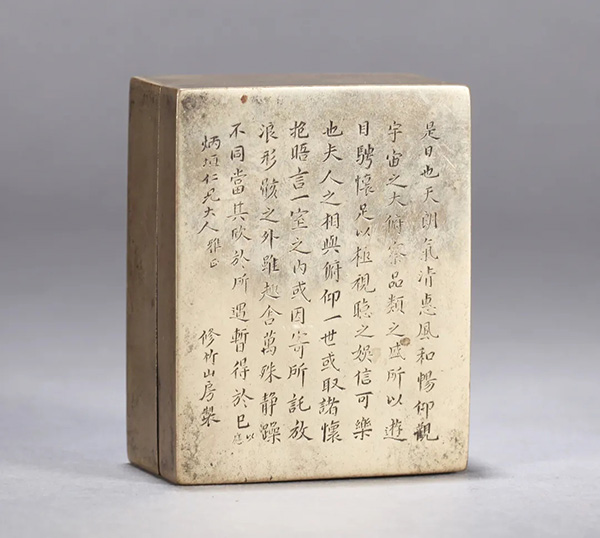 是日也天朗氣清惠風和暢仰觀
宇宙之大俯察品類之盛所以遊
目騁懷足以極視聽之娛信可樂
也夫人之相與俯仰一世或取諸懷
抱晤言一室之內或因寄所託放
浪形骸之外雖趣舍萬殊靜躁
不同當其欣於所遇暫得於己以應
炳仁兄大人雅正
修竹山房製